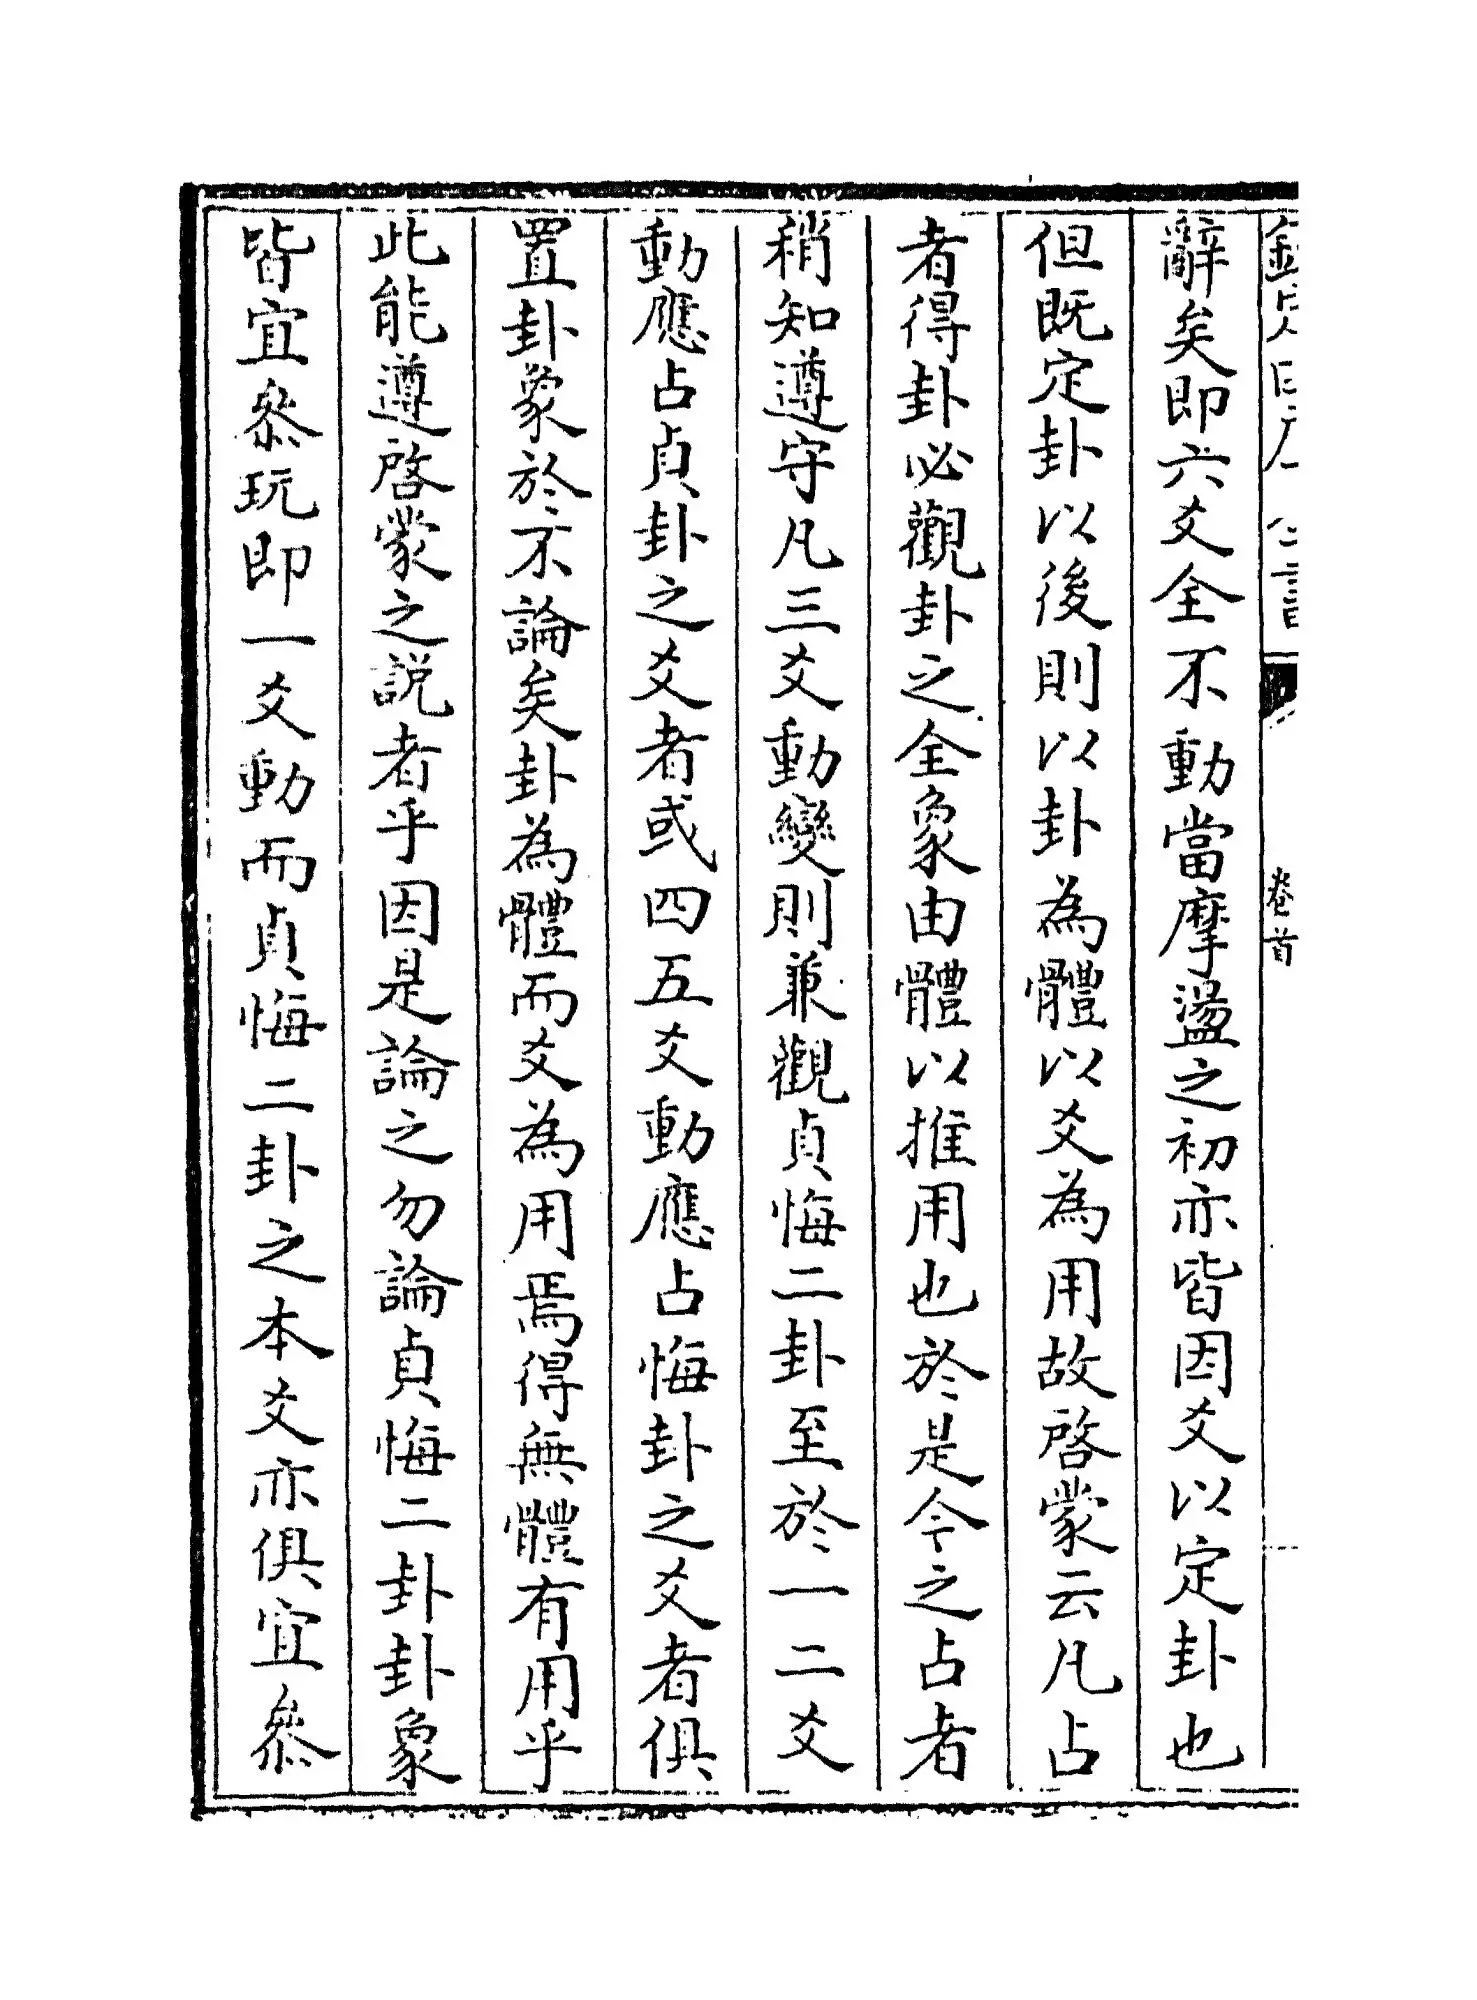 卷首
辭矣即六爻全不動當摩盪之初亦皆因爻以定卦也
但既定卦以後則以卦為體以爻為用故啓蒙云凡占
者得卦必觀卦之全象由體以推用也於是今之占者
稍知遵守凡三爻動變則兼觀貞悔二卦至於一二爻
動應占貞卦之爻者或四五爻動應占悔卦之爻者俱
置卦象於不論矣卦為體而爻為用焉得無體有用乎
此能遵啓蒙之説者乎因是論之勿論貞悔二卦卦象
皆宜叅玩即一爻動而貞悔二卦之本爻亦俱宜叅